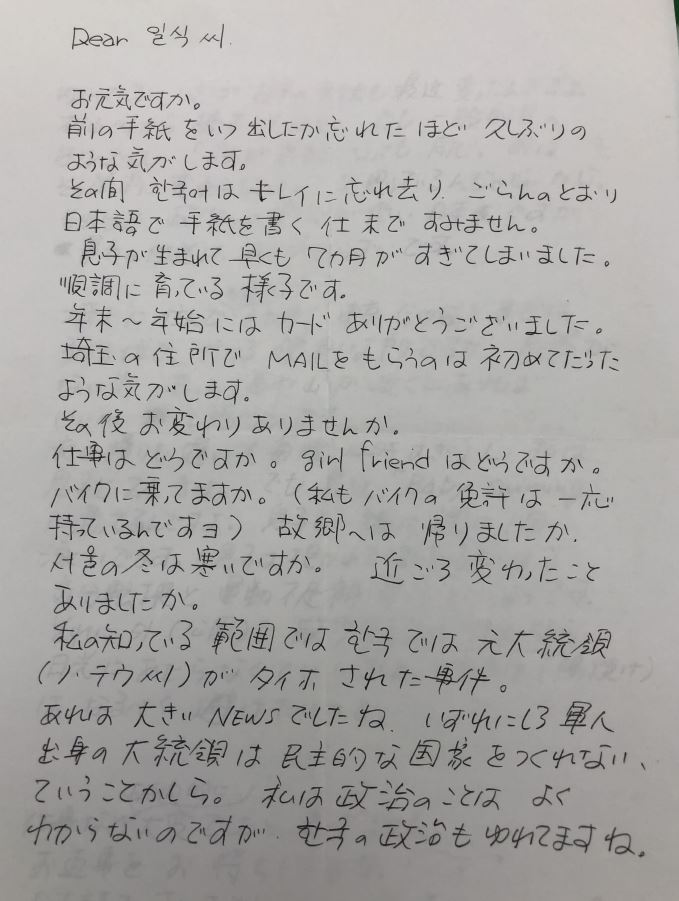 Dear 일식 씨.
お元気ですか。
前の手紙をいつ出したか忘れたほど 久しぶりの
ような気がします。
その間 한국어はキレイに忘れ去り、ごらんのとおり
日本語で手紙を書く仕末ですみません。
息子が生まれて早くも7カ月がすぎてしまいました。
順調に育っている様子です。
年末〜年始にはカードありがとうございました。
埼玉の住所でMAILをもらうのは初めてだった
ような気がします。
その後お変わりありませんか。
仕事はどうですか。girl friendはどうですか。
バイクに乗てますか。(私もバイクの免許は一応
持っているんですヨ) 故郷へは帰りましたか.
서울の冬は寒いですか。 近ごろ変わったこと
ありましたか。
私の知っている範囲では 한국では元大統領
(ノ・テウ씨)がタイホされた事件。
あれは大きいNEWSでしたね. いずれにしろ軍人
出身の大統領は民主的な国家をつくれない、
ていうことかしら。 私は政治のことはよく
わからないのですが、한국の政治もゆれてますね。